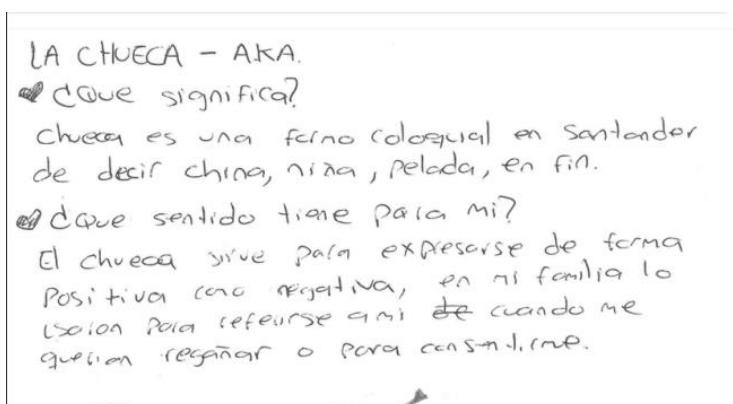 LA CHUECA - AKA.
¿Que significa?
Chueca es una forma coloquial en Santander
de decir china, niña, pelada, en fin.
¿Que sentido tiene para mi?
El chueca sirve para expresarse de forma
Positiva como negativa, en mi familia lo
usaron para referirse a mi de cuando me
querian regañar o para consentirme.